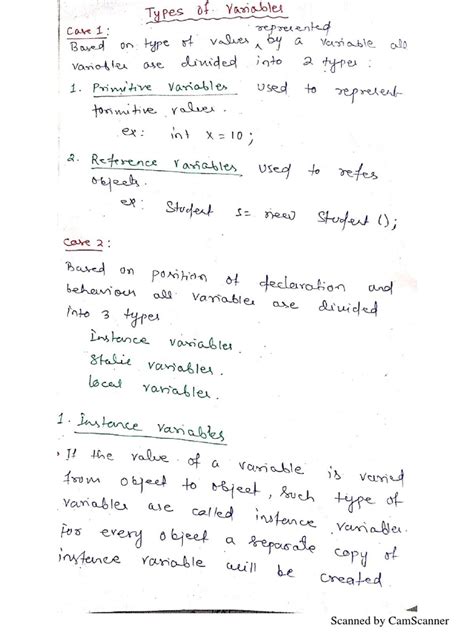 Types of Variables
Case 1:
represented
Based on type of values ^ by a variable all
variables are divided into 2 types:
1. Primitive variables used to represent
primitive values.
ex: int x = 10;
2. Reference variables used to refer
objects.
ex: Student s = new Student();
Case 2:
Based on position of declaration and
behaviour all variables are divided
into 3 types
Instance variables.
Static variables.
Local variables.
1. Instance variables
. If the value of a variable is varied
from object to object, such type of
variables are called instance variables.
For every object a separate copy of
instance variable will be created.
Scanned by CamScanner